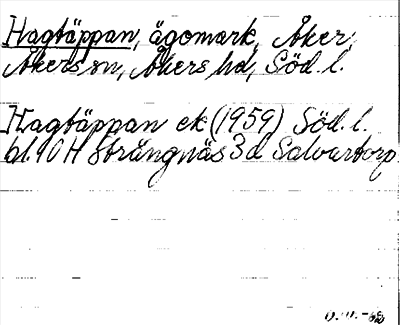 Hagtäppan, ägomark, Åker,
Åkers sn, Åkers hd, Söd. l.
Hagtäppan ek (1959) Söd. l.
bl. 10 H Strängnäs 3d Salvartorp